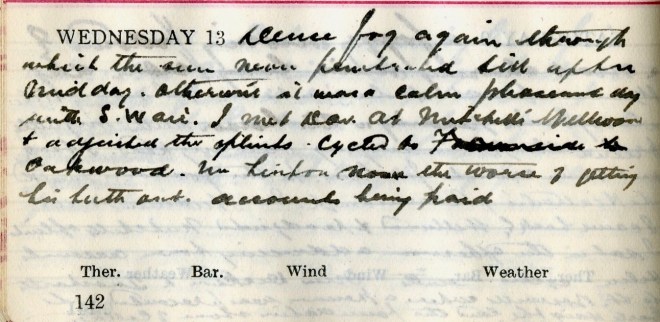 WEDNESDAY 13 Dense fog again through
which the sun never penetrated till after
Midday. Otherwise it was a calm pleasant day
with S. W air. I met Dav. at Mitchell's Millwood
& adjusted the splints. Cycled to
Oakwood. Mr Linton none the worse of getting
his teeth out. accounts being paid
Ther. Bar. Wind Weather
142